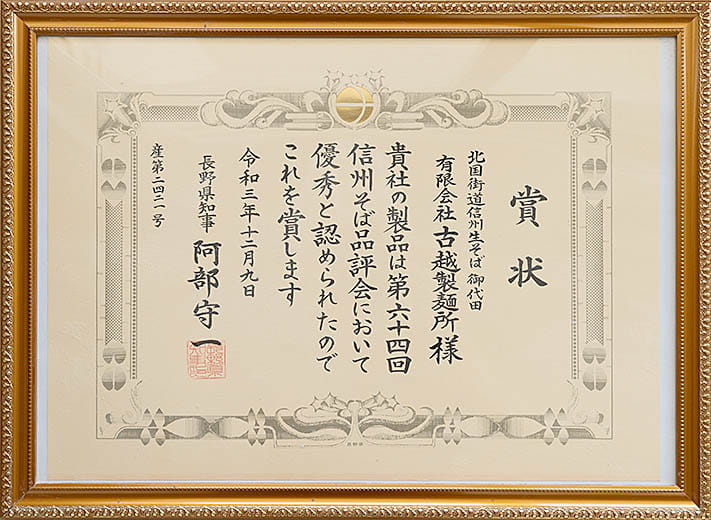 賞状
北国街道信州生そば 御代田
有限会社 古越製麺所 様
貴社の製品は第六十四回
信州そば品評会において
優秀と認められたので
これを賞します
令和三年十二月九日
長野県知事 阿部守一
産第二四二一号
長野県